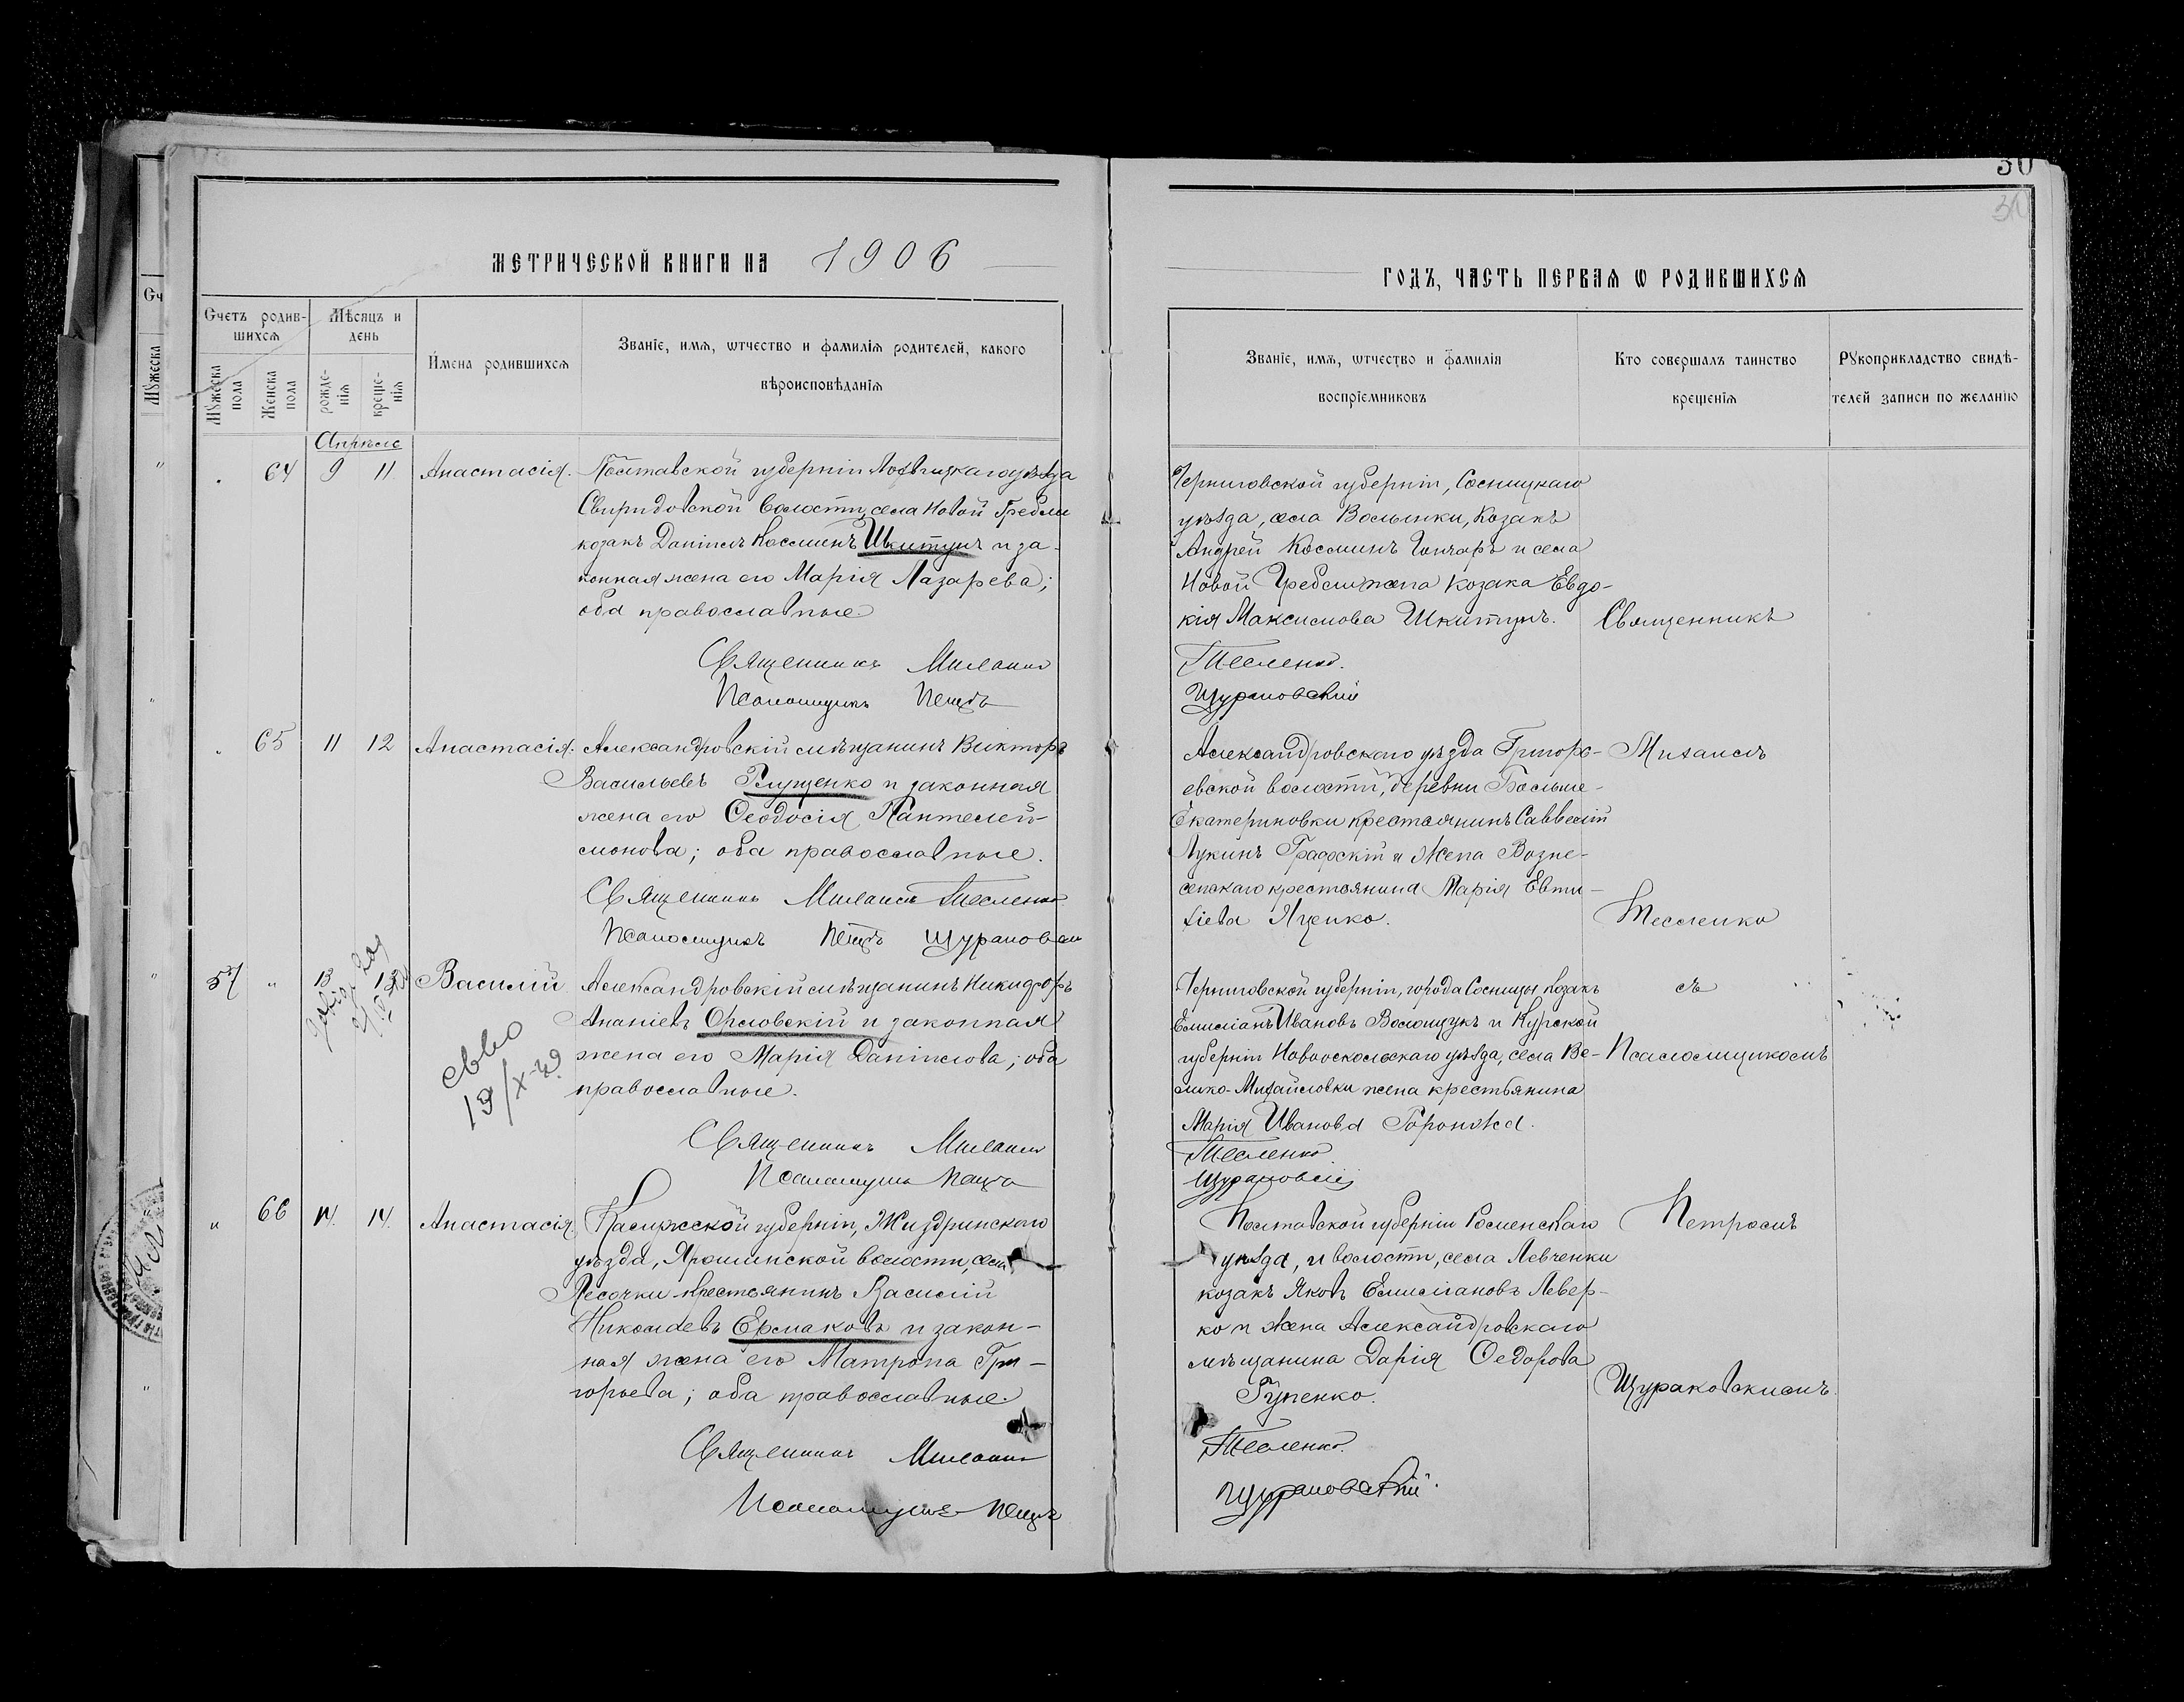 30
МЕТРИЧЕСКОЙ КНИГИ НА 1906
ГОДЪ, ЧАСТЬ ПЕРВАЯ Ѡ РОДИВШИХСЯ
Счетъ родив-
шихся
Мꙋжеска пола
Женска пола
Мѣсяцъ и
день
рожде-
нія
креще-
нія
Имена родившихся
Званіе, имя, ѿтчество и фамилія родителей, какого
вѣроисповѣданія
Званіе, имя, ѿтчество и фамилія
воспріемниковъ
Кто совершалъ таинство
крещенія
Рꙋкоприкладство свидѣ-
телей записи по желанію
Апрѣль
64 9 11 Анастасія. Полтавской губерніи Лохвицкаго уѣзда
Свиридовской волости, села Новой Гребли
козакъ Даніилъ Косминъ Шкитунъ и за-
конная жена его Марія Лазарева;
оба православные.
Священникъ Михаилъ
Псаломщикъ Петръ
Черниговской губерніи, Сосницкаго
уѣзда, села Волынки, Козакъ
Андрей Косминъ Гончаръ и села
Новой Гребли жена козака Евдо-
кія Максимова Шкитунъ.
Тесленко.
Щураковскій
Священникъ
65 11 12 Анастасія. Александровскій мѣщанинъ Викторъ
Васильевъ Глущенко и законная
жена его Ѳеодосія Пантелей-
монова; оба православные.
Священникъ Михаилъ Тесленко
Псаломщикъ Петръ Щураковскій
Александровскаго уѣзда Григорь-
евской волости, деревни Больше-
Екатериновки крестьянинъ Савватій
Лукинъ Графскій и жена Возне-
сенскаго крестьянина Марія Евти-
хіева Яценко.
Михаилъ
Тесленко
57 " 13 13 Василій Александровскій мѣщанинъ Никифоръ
Ананіевъ Орловскій и законная
жена его Марія Даніилова; оба
православные.
Священникъ Михаилъ
Псаломщикъ Петръ
Черниговской губерніи, города Сосницы козакъ
Емиліанъ Ивановъ Волощукъ и Курской
губерніи Новооскольскаго уѣзда, села Ве-
лико-Михайловки жена крестьянина
Марія Иванова Торонжа.
Тесленко
Щураковскій
съ
Псаломщикомъ
" 66 14. 14. Анастасія Калужской губерніи, Жиздринскаго
уѣзда, Ярошинской волости, села
Песочки крестьянинъ Василій
Николаевъ Ермаковъ и закон-
ная жена его Матрона Гри-
горьева; оба православные.
Священникъ Михаилъ
Псаломщикъ Петръ
Полтавской губерніи Роменскаго
уѣзда, и волости, села Левченки
козакъ Яковъ Емиліановъ Левер-
ко и жена Александровскаго
мѣщанина Дарія Ѳедорова
Гупенко.
Тесленко.
Щураковскій.
Петромъ
Щураковскимъ.